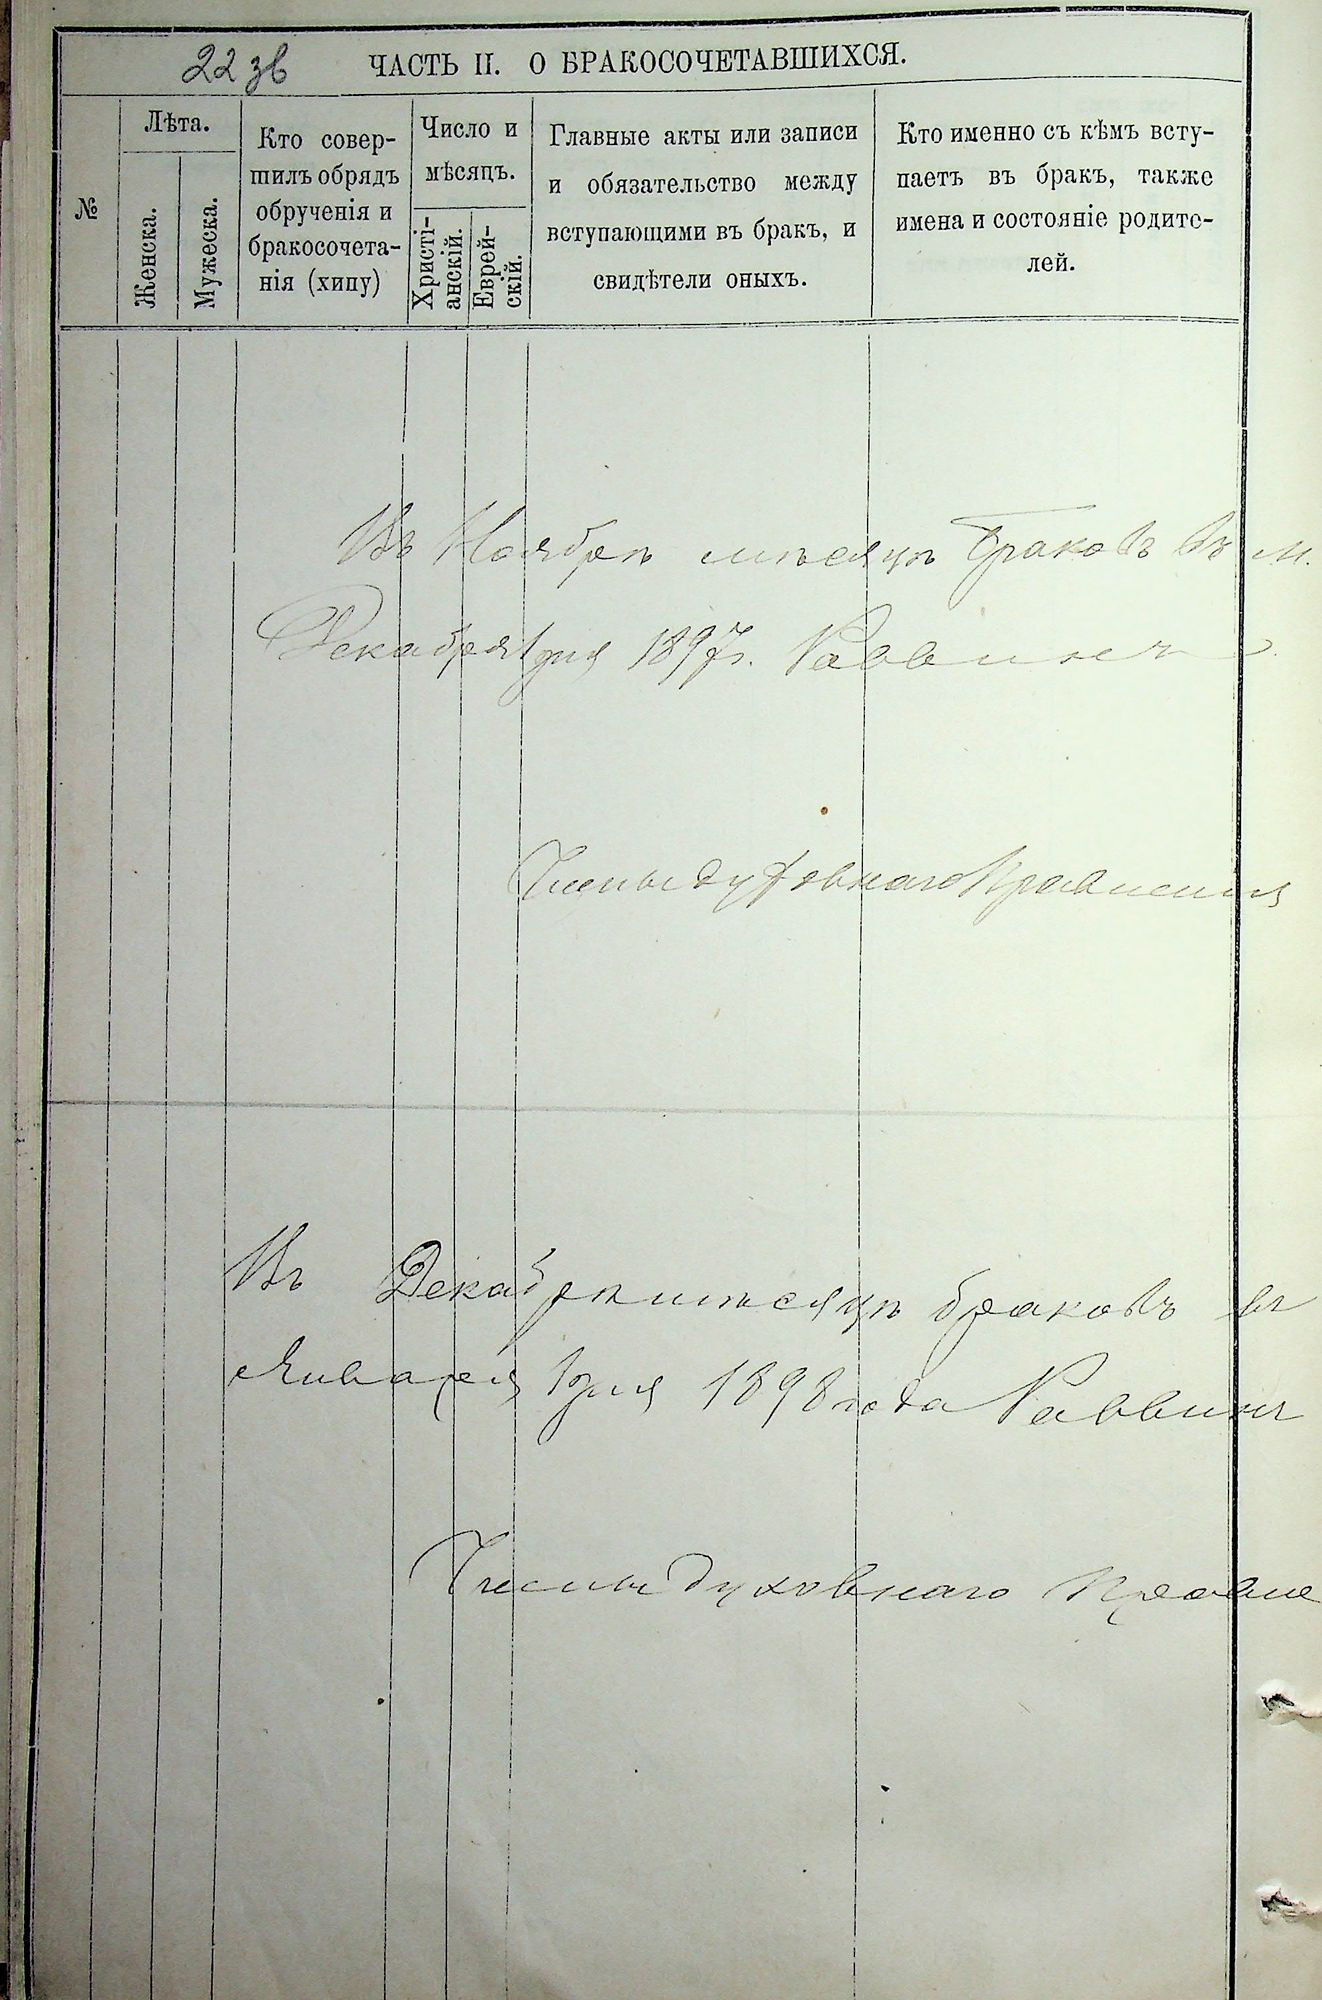 22 зв
ЧАСТЬ II. О БРАКОСОЧЕТАВШИХСЯ.
№
Лѣта.
Женска.
Мужеска.
Кто совер-
шилъ обрядъ
обрученія и
бракосочета-
нія (хипу)
Число и
мѣсяцъ.
Христі-
анскій.
Еврей-
скій.
Главные акты или записи
и обязательство между
вступающими въ бракъ, и
свидѣтели оныхъ.
Кто именно съ кѣмъ всту-
паетъ въ бракъ, также
имена и состояніе родите-
лей.
Въ Ноябрѣ мѣсяцѣ Браковъ въ м.
Декабря 1 дня 1897 г. Раввинъ
Члены духовнаго Правления
Въ Декабрѣ мѣсяцѣ браковъ въ
Января 1 дня 1898 года Раввинъ
Члены духовнаго Правле